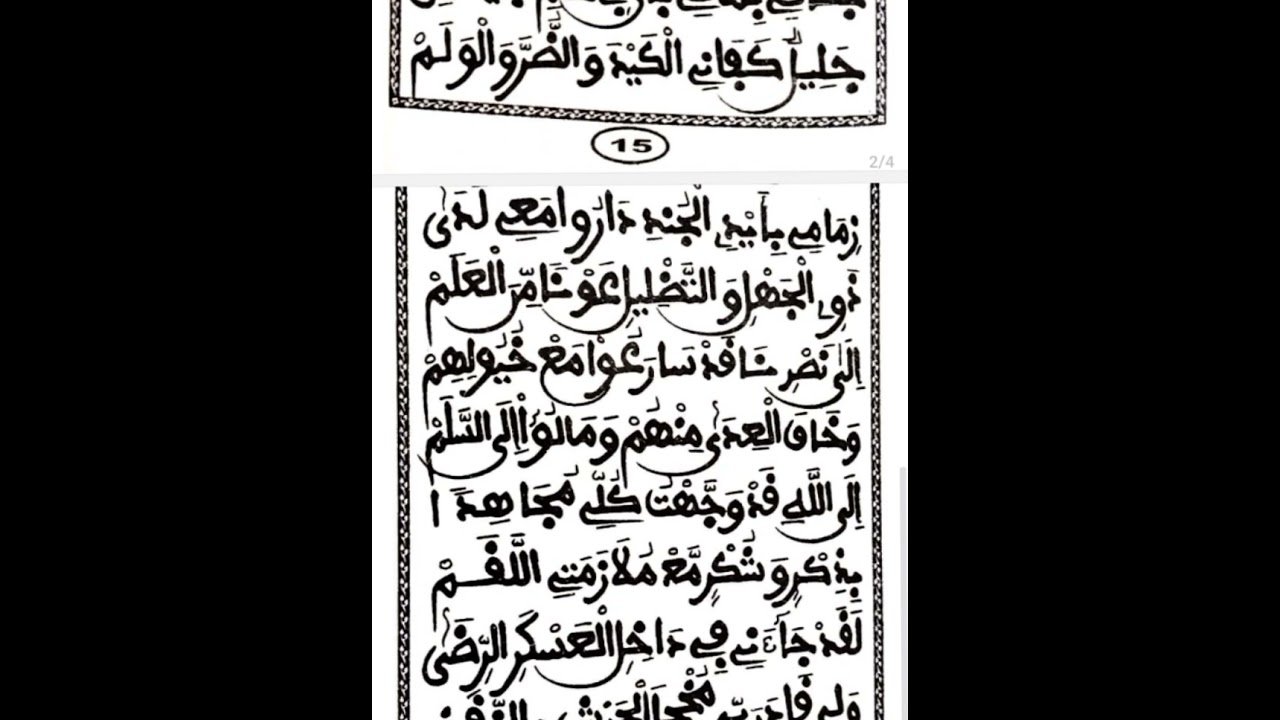 جَلِيلاً كَفَانِي الْكَيْدَ وَالضُّرَّ وَالْوَلَمْ
15
2/4
زِمَامِي بِأَيْدِي الْجُنْدِ دَارُوا مَعِي لَدَى
ذَوِي الْجَهْلِ وَالتَّضْلِيلِ عَوْنًا مِّنَ الْعَلَمْ
إِلَى نَصْرِنَا قَدْ سَارَعُوا مَعْ خُيُولِهِمْ
وَخَافَ الْعِدَى مِنْهُمْ وَمَالُوا إِلَى السَّلَمْ
إِلَى اللَّهِ قَدْ وَجَّهْتُ كُلِّي مُجَاهِدَا
بِذِكْرٍ وَشُكْرٍ مَّعْ مُلَازَمَتِي اللَّقَمْ
لَقَدْ جَاءَنِي فِي دَاخِلِ الْعَسْكَرِ الرِّضَى